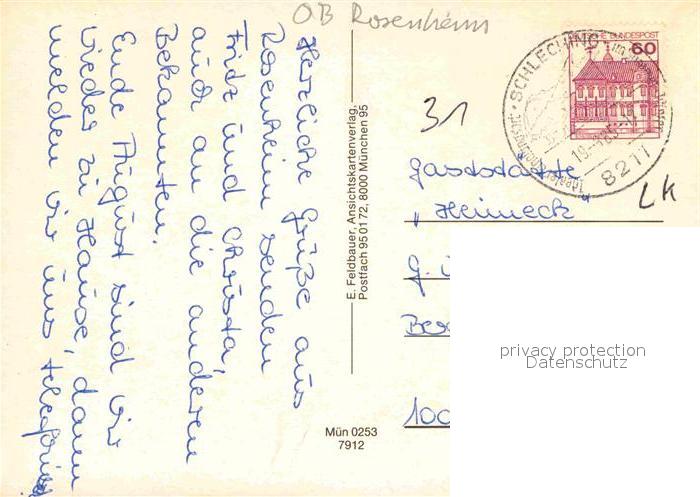 OB Rosenheim
Herzliche Grüße aus
Rosenheim senden
Fritz und Christa,
auch an die anderen
Bekannten.
Ende August sind wir
wieder zu Hause, dann
melden wir uns
E. Feldbauer, Ansichtskartenverlag,
Postfach 950172, 8000 München 95
Mün 0253
7912
31
DEUTSCHE BUNDESPOST
60
SCHLECHING
8211
Gaststätte
"Heineck"
LK
G.
100
privacy protection
Datenschutz